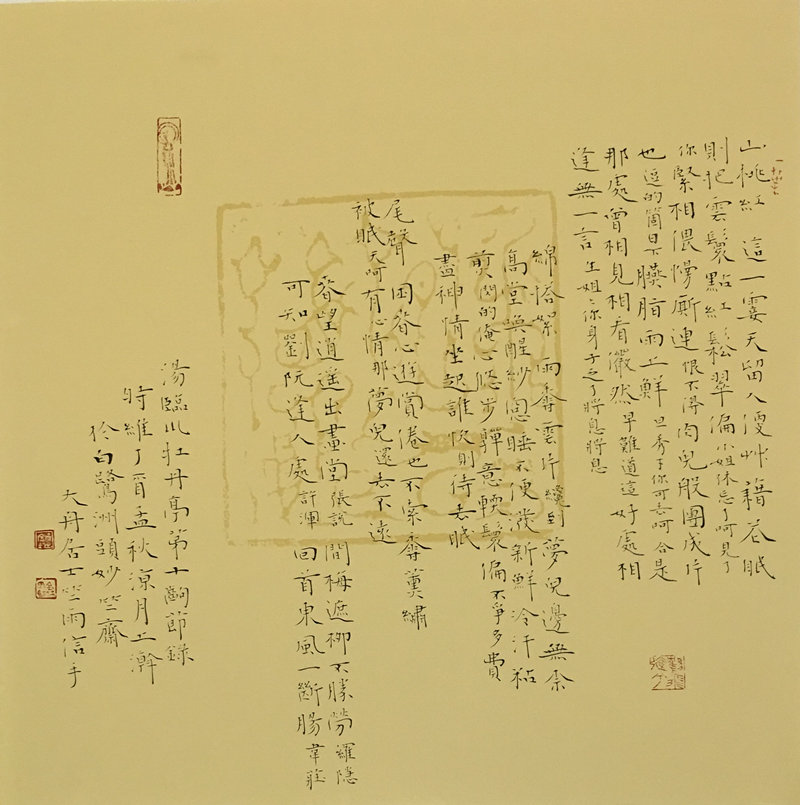 山桃紅 這一霎天留人便艸藉花眠
則把雲鬟點紅鬆翠偏小姐休忘了呵見了
你緊相偎慢廝連恨不得肉兒般團成片
也逗的箇日下臙脂雨上鮮旦秀才你可去呵合是
那處曾相見相看儼然早難道這好處相
逢無一言生姐〻你身子乏了將息將息
綿搭絮 雨香雲片纔到夢兒邊無奈
高堂喚醒紗窗睡不便潑新鮮冷汗粘
煎閃的俺心悠步嚲意輭鬟偏不爭多費
盡神情坐起誰忺則待去眠
尾聲 困春心遊賞倦也不索香薰繡
被眠天呵有心情那夢兒還去不遠
春望逍遙出畫堂張說間梅遮柳不勝芳羅隱
可知劉阮逢人處許渾回首東風一斷腸韋莊
湯臨川牡丹亭第十齣節錄
時維丁酉孟秋涼月上澣
於白鷺洲頭妙竺齋
大舟居士竺雨信手